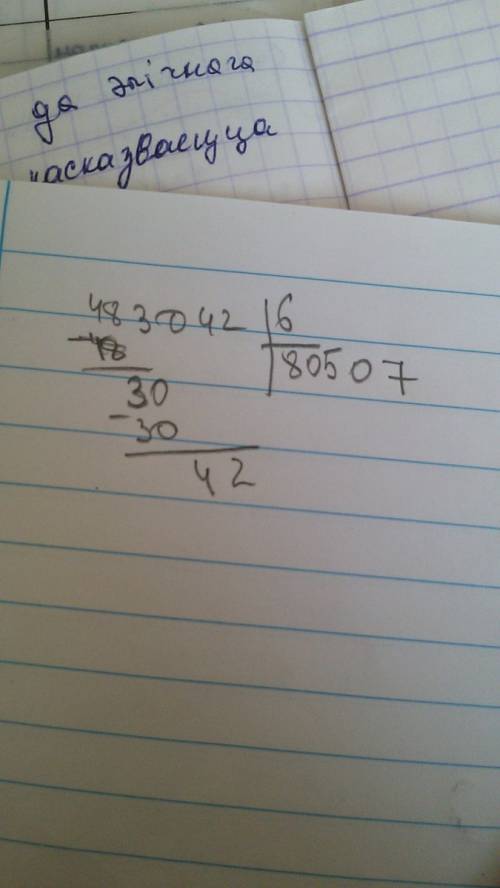 да эпічнага
насказваецца
483042 6
48 80507
30
- 30
42